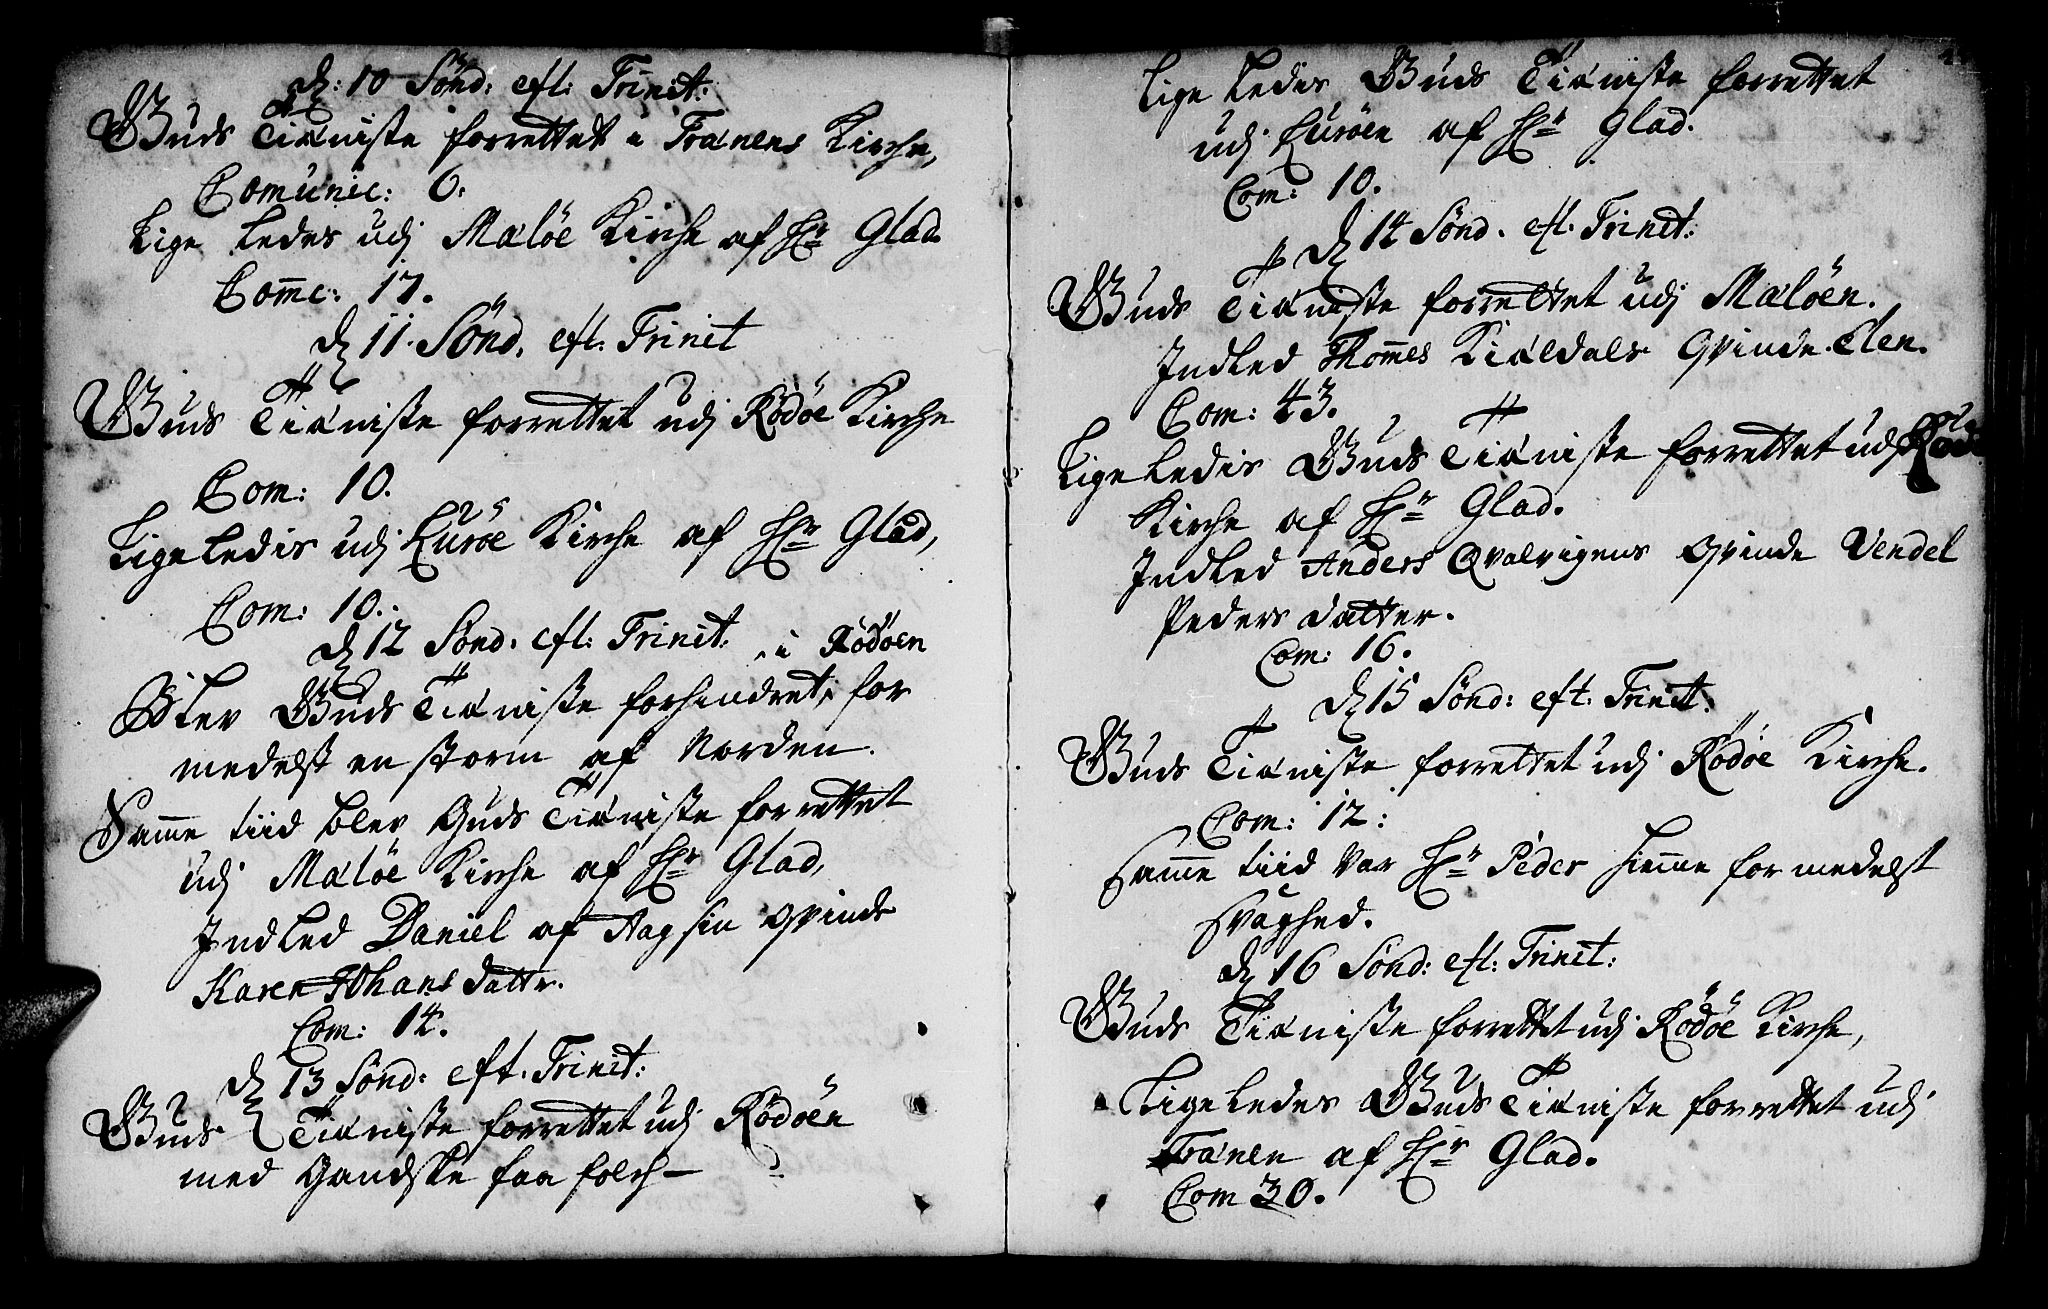 d: 10 Sönd: eft: Trinit:
Guds Tiæniste forrettet i Trænens Kirche,
Comunic: 6.
Lige Ledes udj Meløe Kirche af Hr Glad.
Comc: 17.
d 11. Sönd. eft. Trinit
Guds Tiæniste forrettet udj Rödöe Kirche
Com: 10.
Lige Ledis udj Luröe Kirche af Hr Glad,
Com: 10.
d 12 Sönd. eft: Trinit:
Blev Guds Tiæniste forhindret i Rödöen for
medelst en storm af Norden.
Samme tiid blev Guds Tiæniste forrettet
udj Mæløe Kirche af Hr Glad,
Indled Daniel af Aag sin Qvinde
Karen Johans datter.
Com: 14.
d 13 Sönd: eft. Trinit:
Guds Tiæniste forrettet udj Rödöen
med Gandske faa folch-
Lige Ledis Guds Tiæniste forrettet
udj Luröen af Hr Glad.
Com: 10.
d 14 Sönd. eft. Trinit:
Guds Tiæniste forrettet udj Mæløen.
Indled Thommes Kiældals Qvinde Elen.
Com: 43.
Lige Ledis Guds Tiæniste forrettet udj
Kirche af Hr Glad.
Indled Anders Qvalvigens Qvinde Vendel
Peders datter.
Com: 16.
d 15 Sönd: eft. Trinit:
Guds Tiæniste forrettet udj Rödöe Kirche.
Com: 12:
Samme tiid var Hr Peder hiemme formedelst
svaghed.
d 16 Sönd: eft: Trinit:
Guds Tiæniste forrettet udj Rödöe Kirche,
Lige Ledes Guds Tiæniste forrettet udj
Trænen af Hr Glad.
Com 30.